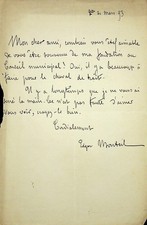 de mars 83
Mon cher ami, combien vous êtes aimable
de vous être souvenu de ma fondation au
Conseil municipal ! Oui, il y a beaucoup à
faire pour le cheval de trait.
Il y a longtemps que je ne vous ai
la main. Ce n'est pas faute d'aimer
vous voir, croyez-le bien.
Cordialement